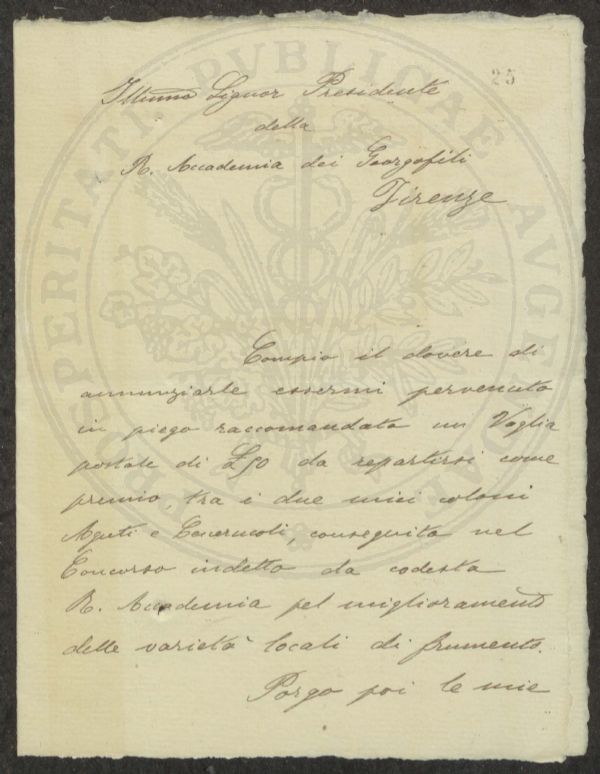 25
Illmo Signor Presidente
della
R. Accademia dei Georgofili
Firenze
Compio il dovere di
annunziarle essermi pervenuto
in piego raccomandato un Vaglia
postale di £50 da repartirsi come
premio, tra i due miei coloni
e conseguito nel
Concorso indetto da codesta
R. Accademia pel miglioramento
delle varietà locali di frumento.
Porgo poi le mie
PROSPERITATI PVBLICAE AVGENDAE